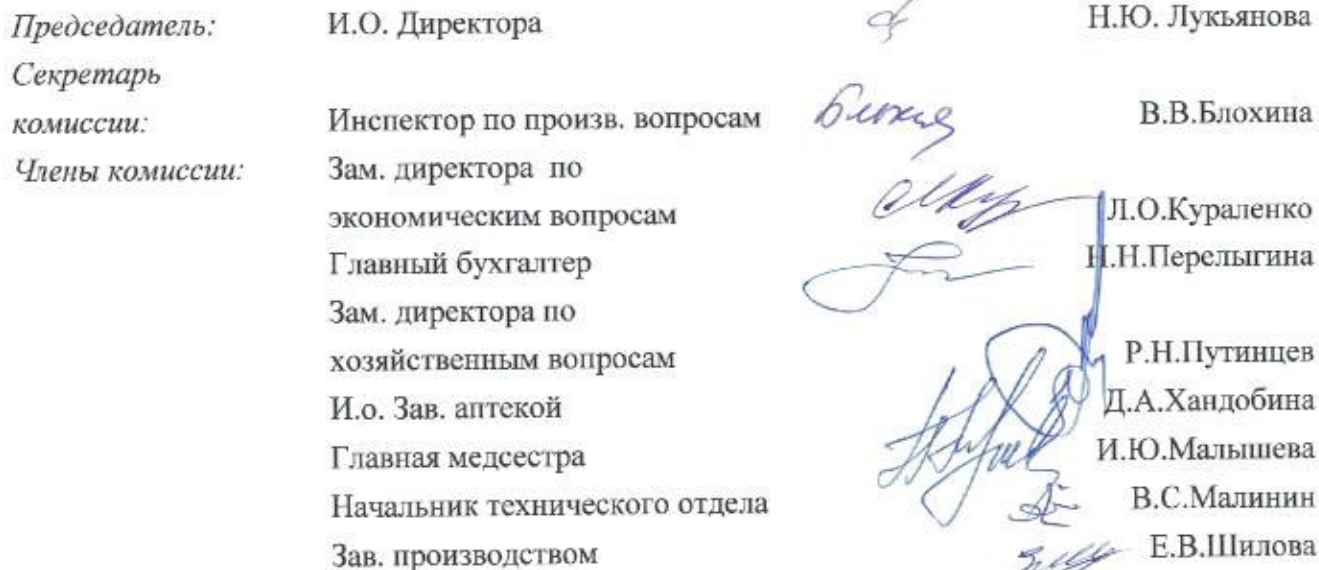 Председатель: И.О. Директора Н.Ю. Лукьянова
Секретарь
комиссии: Инспектор по произв. вопросам В.В.Блохина
Члены комиссии: Зам. директора по
экономическим вопросам Л.О.Кураленко
Главный бухгалтер Н.Н.Перелыгина
Зам. директора по
хозяйственным вопросам Р.Н.Путинцев
И.о. Зав. аптекой Д.А.Хандобина
Главная медсестра И.Ю.Малышева
Начальник технического отдела В.С.Малинин
Зав. производством Е.В.Шилова